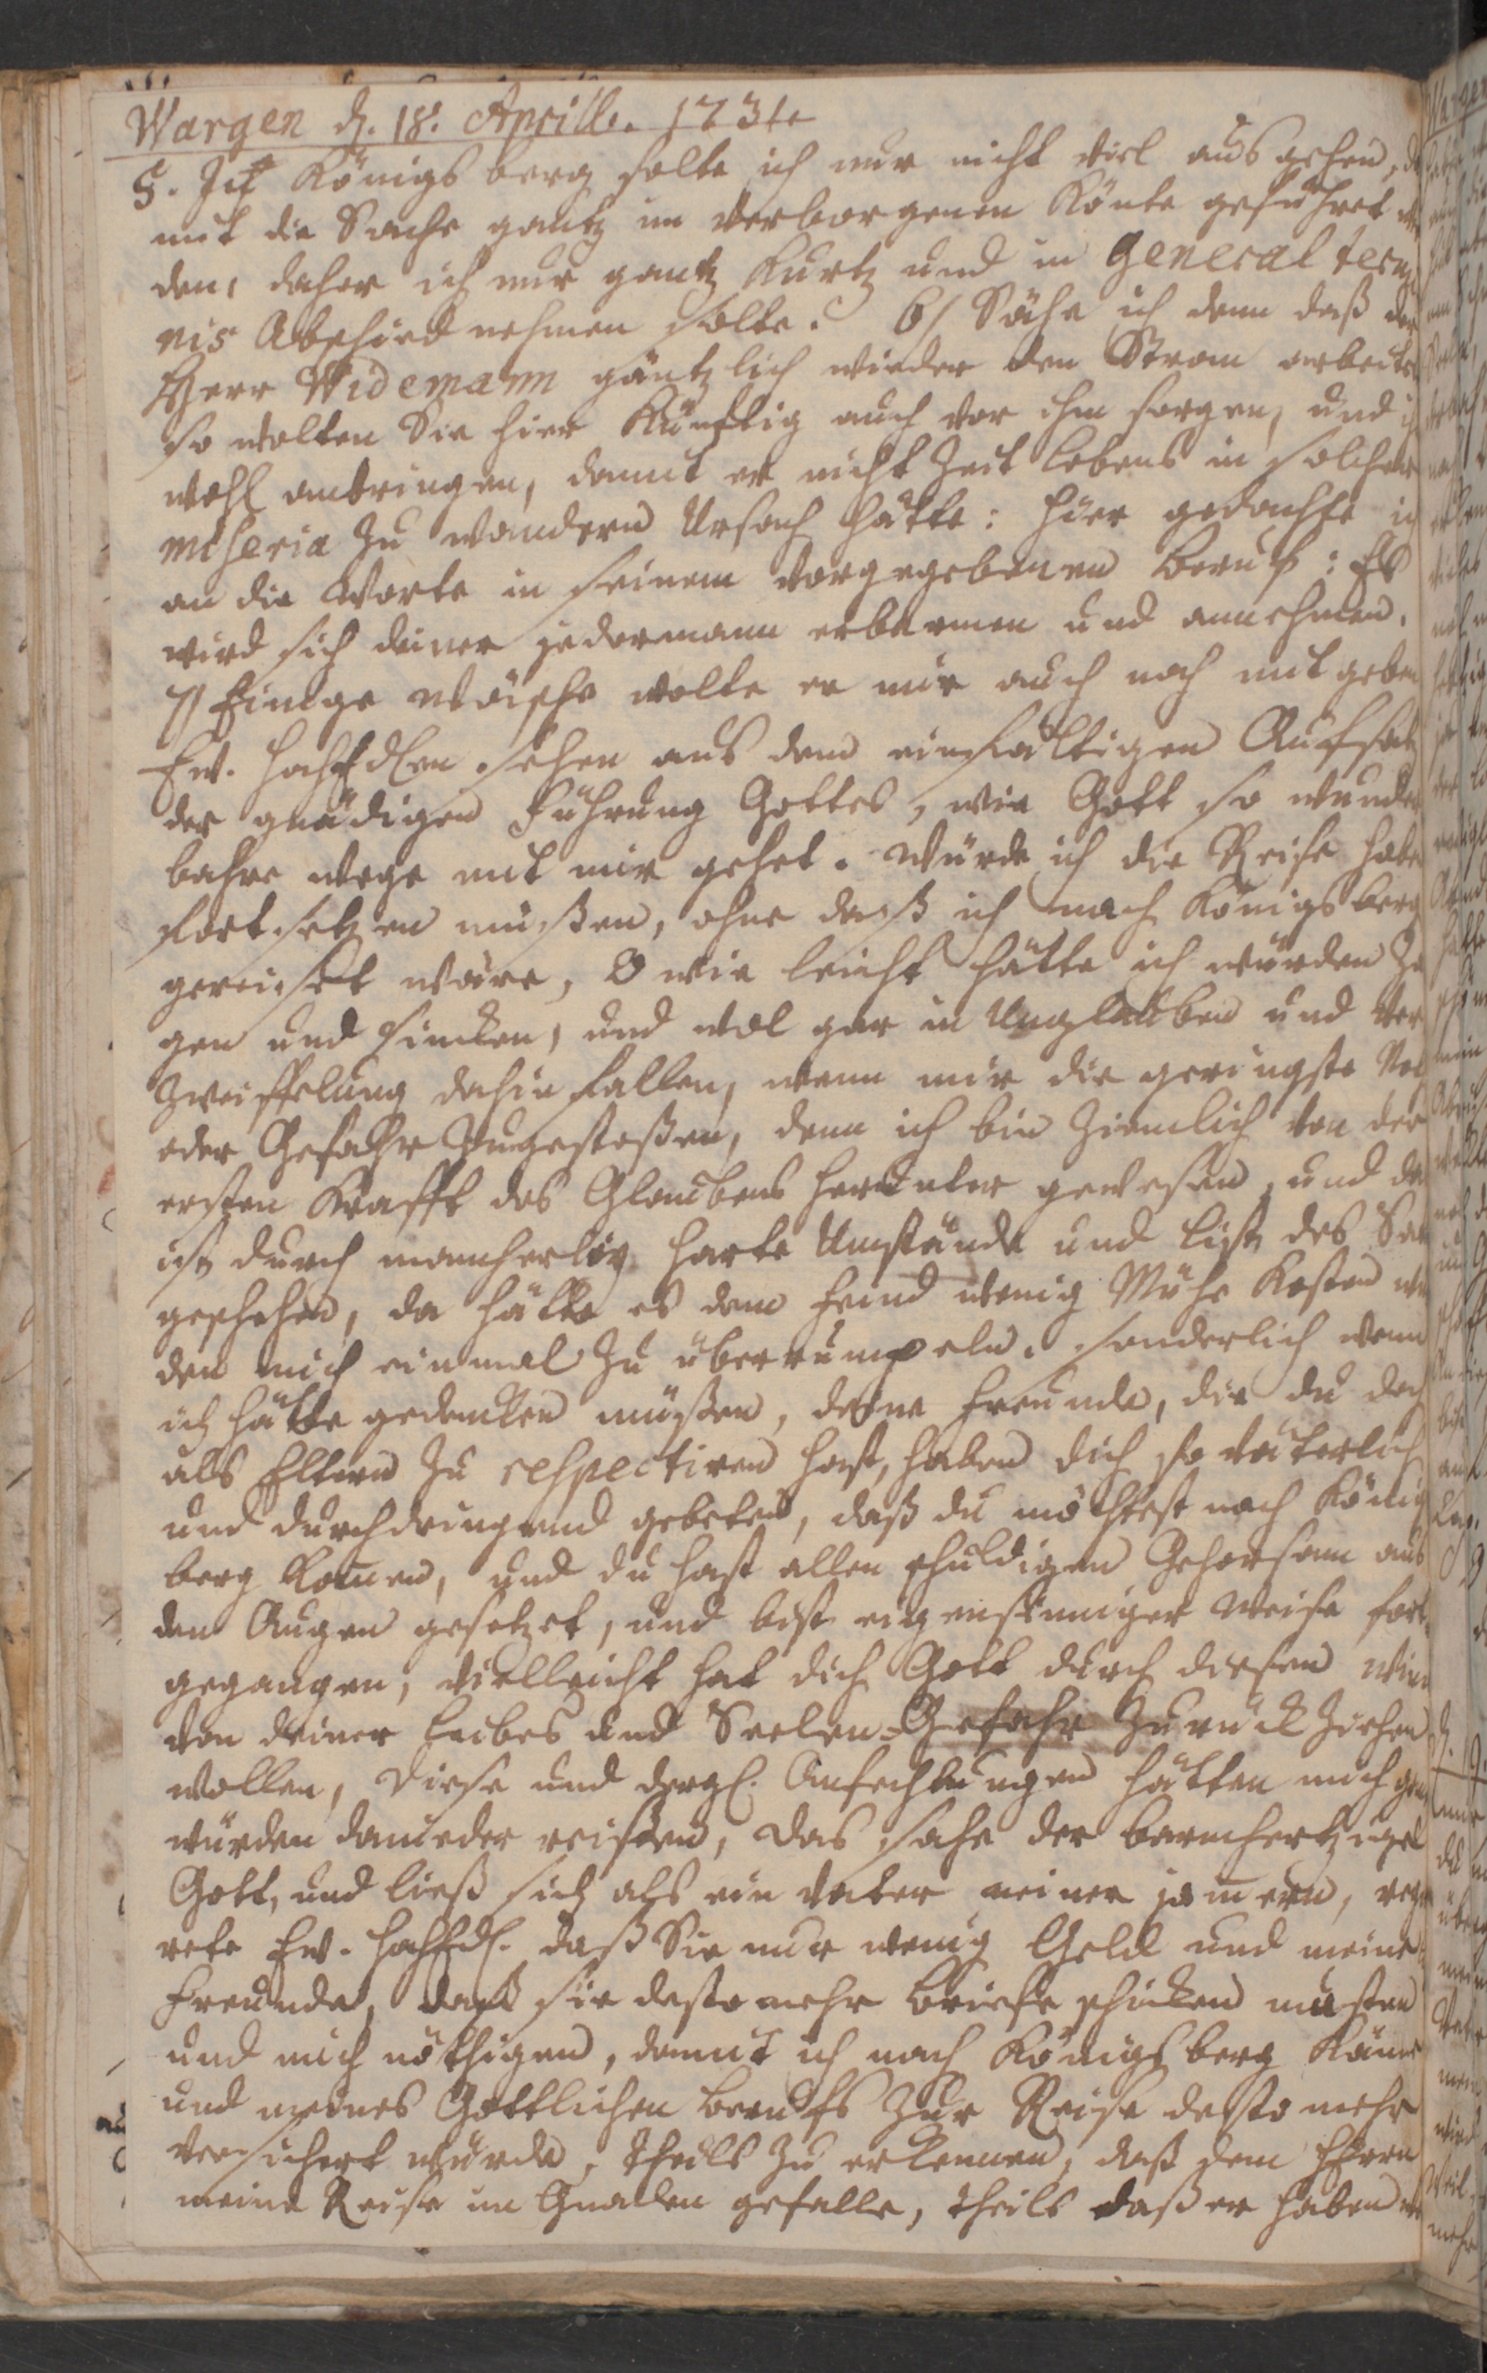 Wargen d. 18. Aprill. 1731
5. In Königsberg solte ich nur nicht viel ausgehen, da
mit die Sache gantz im verborgenen könte geführet wer
den, daher ich nur gantz kurtz und in general termi
nis Abschied nehmen solte. 6) Sähe ich denn daß der
Herr Widemann gäntzlich wieder den Strom arbeite
so wolten Sie hier künftig auch vor ihm sorgen, und ihn
wohl anbringen, damit er nicht Zeit lebens in solcher
miseria zu wandern Ursach hätte: hier gedachte ich
an die Worte in seinem vorgegebenen Beruf: Es
wird sich deiner jedermann erbarmen und annehmen.
7) Einige Wäsche wolte er mir auch noch mit geben
Ew. HochEdlen sehen aus dem einfältigen Aufsatz
der gnädigen Führung Gottes, wie Gott so wunder
bahre wege mit mir gehet. Würde ich die Reise habe
fortsetzen müßen, ohne daß ich nach Königsberg
gereiset wäre, O wie leicht hätte ich würden Za
gen und sincken, und wol gar in Unglauben und Ver
zweiffelung dahin fallen, wenn mir die geringste Not
oder Gefahr zugestoßen, denn ich bin ziemlich von der
ersten Krafft des Glaubens herunter gewesen, und da
ists durch mancherley harte Umstände und list des Sat
geschehen, da hätte es dem feind wenig Mühe kosten wür
den mich einmal zu überrumpeln. sonderlich wenn
ich hätte gedencken müßen, deine Freunde, die du doch
als Eltern zu respectiren hast, haben dich so väterlich
und durchdringend gebeten, daß du möchtest nach Königs
berg kommen, und du hast allen schuldigen Gehorsam aus
den Augen gesetzet, und bist eigensinniger Weise fort
gegangen, vielleicht hat dich Gott durch diesen Winck
von deiner Leibes und Seelen-Gefahr zurück ziehen
wollen, Diese und dergl. Anfechtungen hätten mich gantz
würden danieder reißen, Das sahe der barmhertzige
Gott, und ließ sich als ein Vater meiner jammern, regie
rete Ew. HochEdl. daß Sie mir wenig Geld und meine
Freunde, daß sie desto mehr Briefe schicken musten
und mich nöthigen, damit ich nach Königsberg käme
und meines Göttlichen Berufs zur Reise desto mehr
versichert würde, theils zu erkennen, daß dem HErrn
meine Reise in Gnaden gefalle, theils daß er haben wol